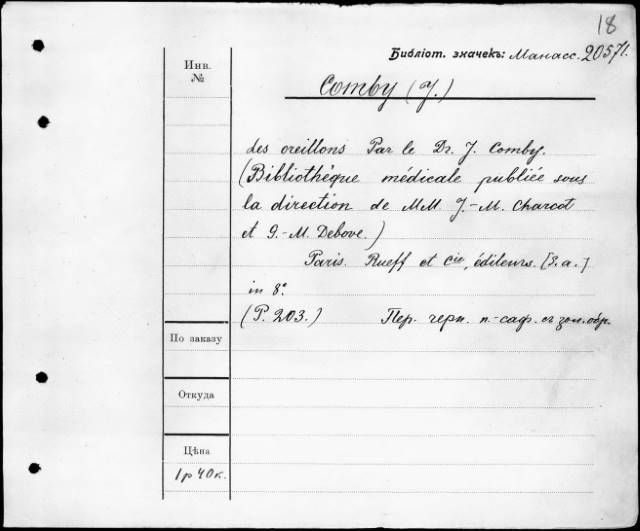 18
Библіот. значекъ: Манасс. 20571.
Инв.
№
Comby (J.)
des oreillons Par le Dr. J. Comby.
(Bibliothèque médicale publiée sous
la direction de MM J.-M. Charcot
et G.-M. Debove.)
Paris. Rueff et Cie, éditeurs. [S.a.]
in 8º
(P. 203.) Пер. черн. п-саф. съ зол. обр.
По заказу
Откуда
Цѣна
1р 40к.